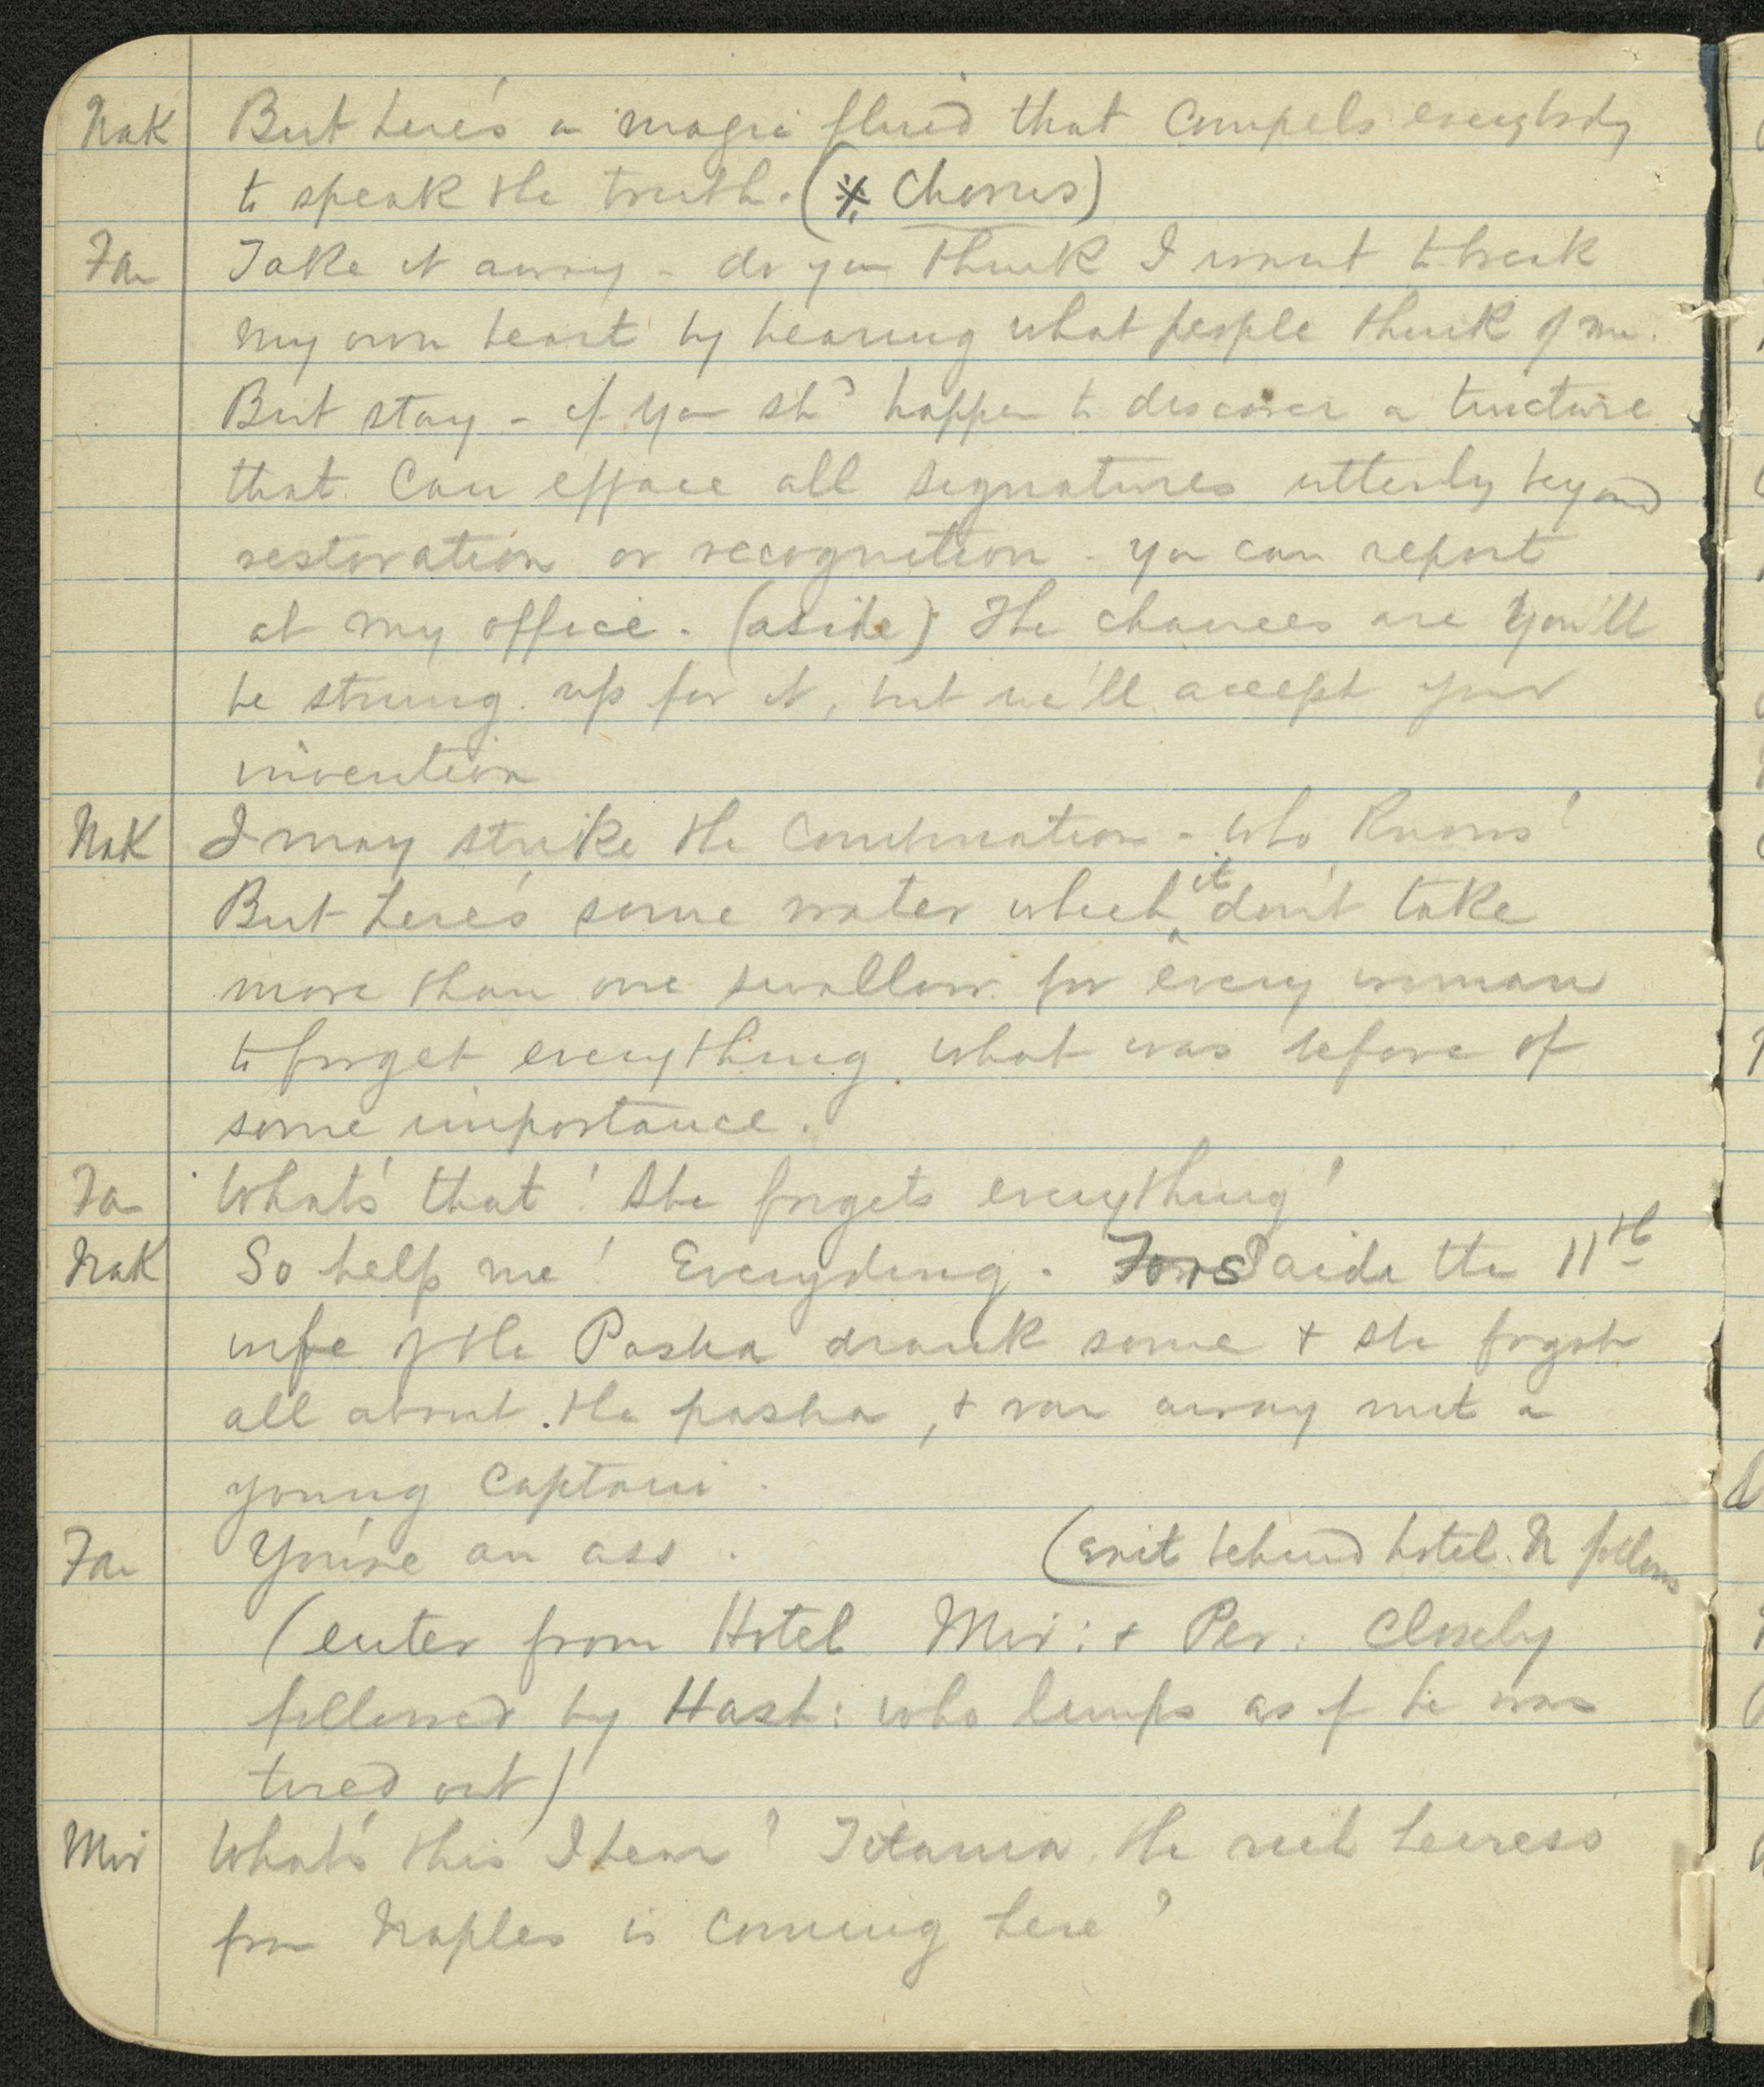 Nak But here's a magic fluid that compels everybody
to speak the truth. (※ Chorus)
Fa Take it away - do you think I want to break
my own heart by hearing what people think of me.
But stay - if you shd happen to discover a tincture
that can efface all signatures utterly beyond
restoration or recognition - you can report
at my office. (aside) The chances are you'll
be strung up for it, but we'll accept your
invention
Nak I may strike the combination - who knows!
But here's some water which it don't take
more than one swallow for every woman
to forget everything what was before of
some importance.
Fa What's that! She forgets everything?
Nak So help me! Everyding. Saida the 11th
wife of the Pasha drank some & she forgot
all about the pasha, & ran away mit a
young Captain.
Fa You're an ass. (exit behind hotel. N follows
(enter from Hotel Mir: & Per: closely
followed by Hash: who limps as if he was
tired out)
Mir What's this I hear? Titania, the rich heiress
from Naples is coming here?